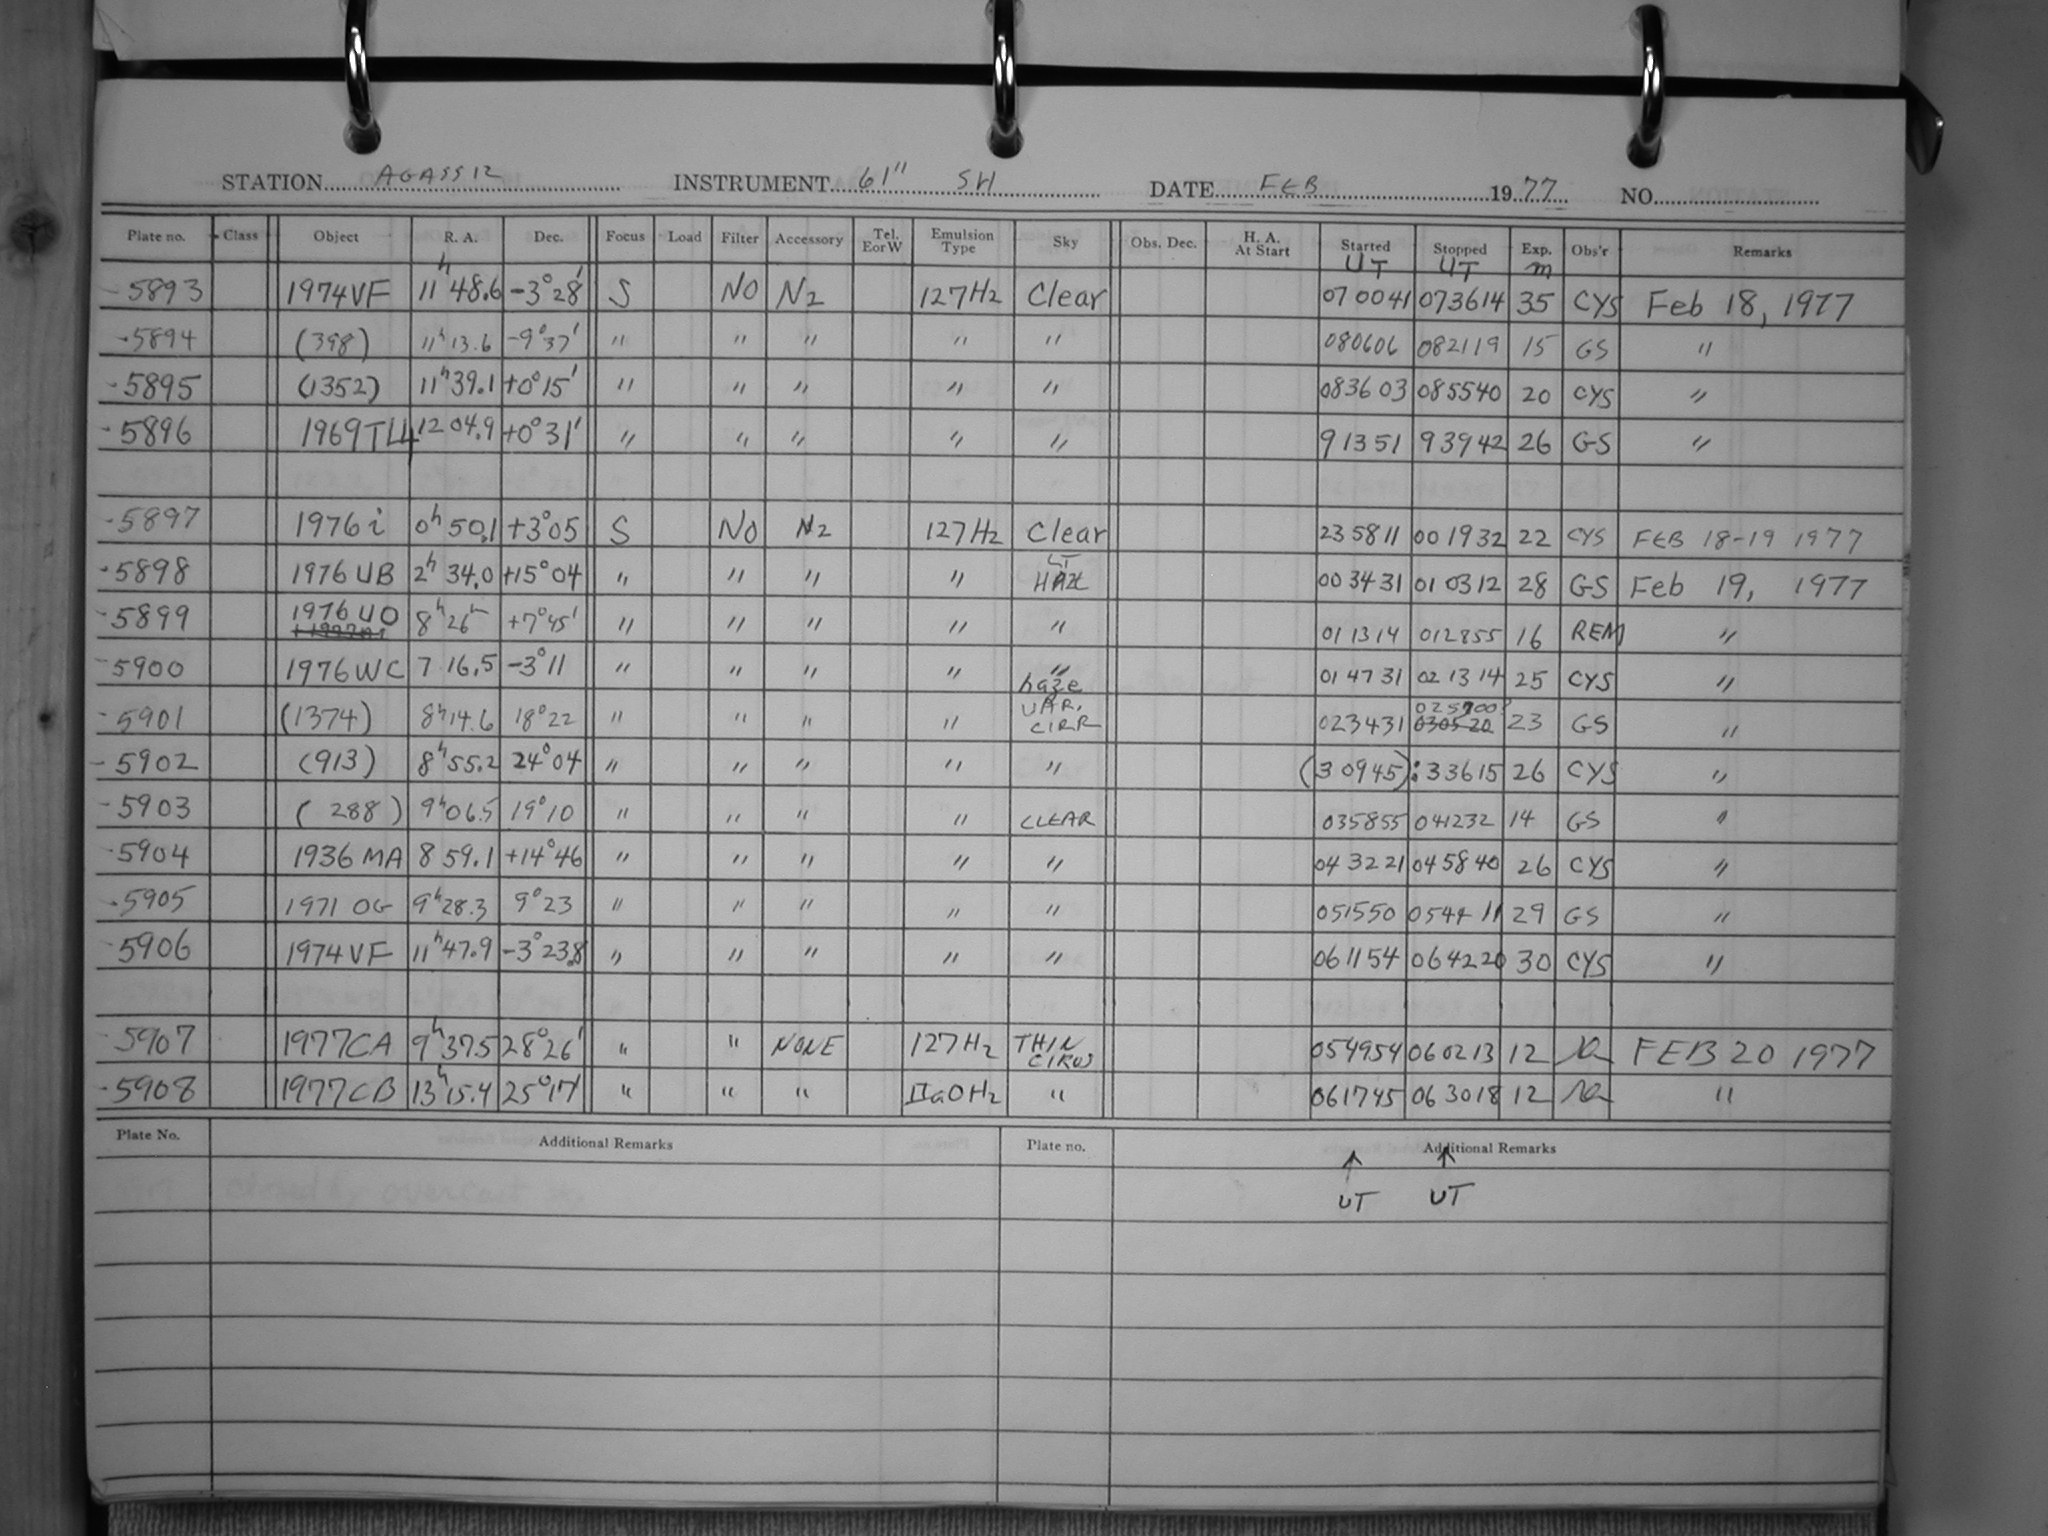 STATION AGASSIZ INSTRUMENT 61" SH DATE FEB 1977 NO.
Plate no. Class Object R. A. Dec. Focus Load Filter Accessory Tel. E or W Emulsion Type Sky Obs. Dec. H. A. At Start Started UT Stopped UT Exp. m Obs'r Remarks
-5893 1974VF 11h48.6 -3°28' S NO N2 127H2 Clear 070041 073614 35 CYS Feb 18, 1977
-5894 (398) 11h13.6 -9°37' " " " " " 080606 082119 15 GS "
-5895 (1352) 11h39.1 +0°15' " " " " " 083603 085540 20 CYS "
-5896 1969TL4 12 04.9 +0°31' " " " " " 91351 93942 26 GS "
-5897 1976i 0h50.1 +3°05 S NO N2 127H2 Clear 235811 001932 22 CYS FEB 18-19 1977
-5898 1976UB 2h34.0 +15°04 " " " " LT HAZE 003431 010312 28 GS Feb 19, 1977
-5899 1976UO 8h26 +7°45' " " " " " 011314 012855 16 REM "
-5900 1976WC 7 16.5 -3°11 " " " " " haze 014731 021314 25 CYS "
-5901 (1374) 8h14.6 18°22 " " " " VAR. CIRR 023431 025700 030520 23 GS "
-5902 (913) 8h55.2 24°04 " " " " " (30945): 33615 26 CYS "
-5903 (288) 9h06.5 19°10 " " " " CLEAR 035855 041232 14 GS "
-5904 1936MA 8 59.1 +14°46 " " " " " 043221 045840 26 CYS "
-5905 1971 OG 9h28.3 9°23 " " " " " 051550 054411 29 GS "
-5906 1974VF 11h47.9 -3°23.8 " " " " " 061154 064220 30 CYS "
-5907 1977CA 9h37.5 28°26' " " NONE 127H2 THIN CIRUS 054954 060213 12 FEB 20 1977
-5908 1977CB 13h15.4 25°17' " " " IIaOH2 " 061745 063018 12 "
Plate No. Additional Remarks Plate no. Additional Remarks
↑ UT ↑ UT